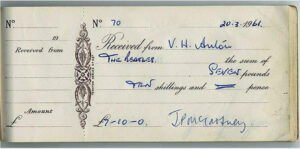 Nº
in
Received from
Amount
£
Nº 70 20·3·1961
Received from V. H. Antón
THE BEATLES. the sum of
SEVEN pounds
TEN shillings and pence
£ -10-0. J P McCartney